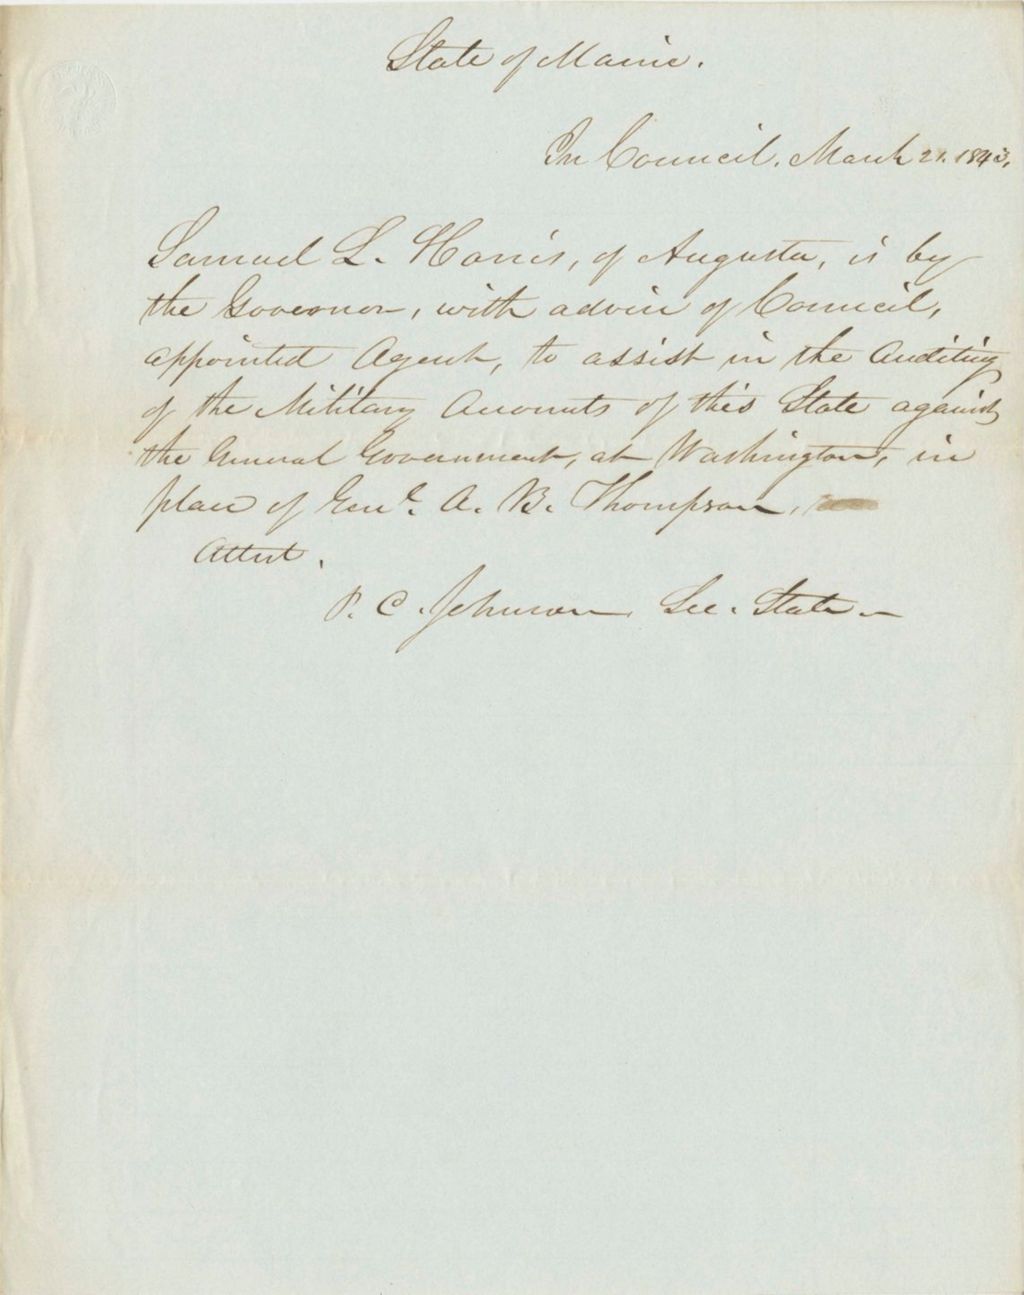 State of Maine.
In Council, March 21. 1843.
Samuel L. Harris, of Augusta, is by
the Governor, with advice of Council,
appointed Agent, to assist in the Auditing
of the Military Accounts of this State against
the General Government, at Washington, in
place of Genl. A. B. Thompson.
Attest.
P. C. Johnson, Sec. State.